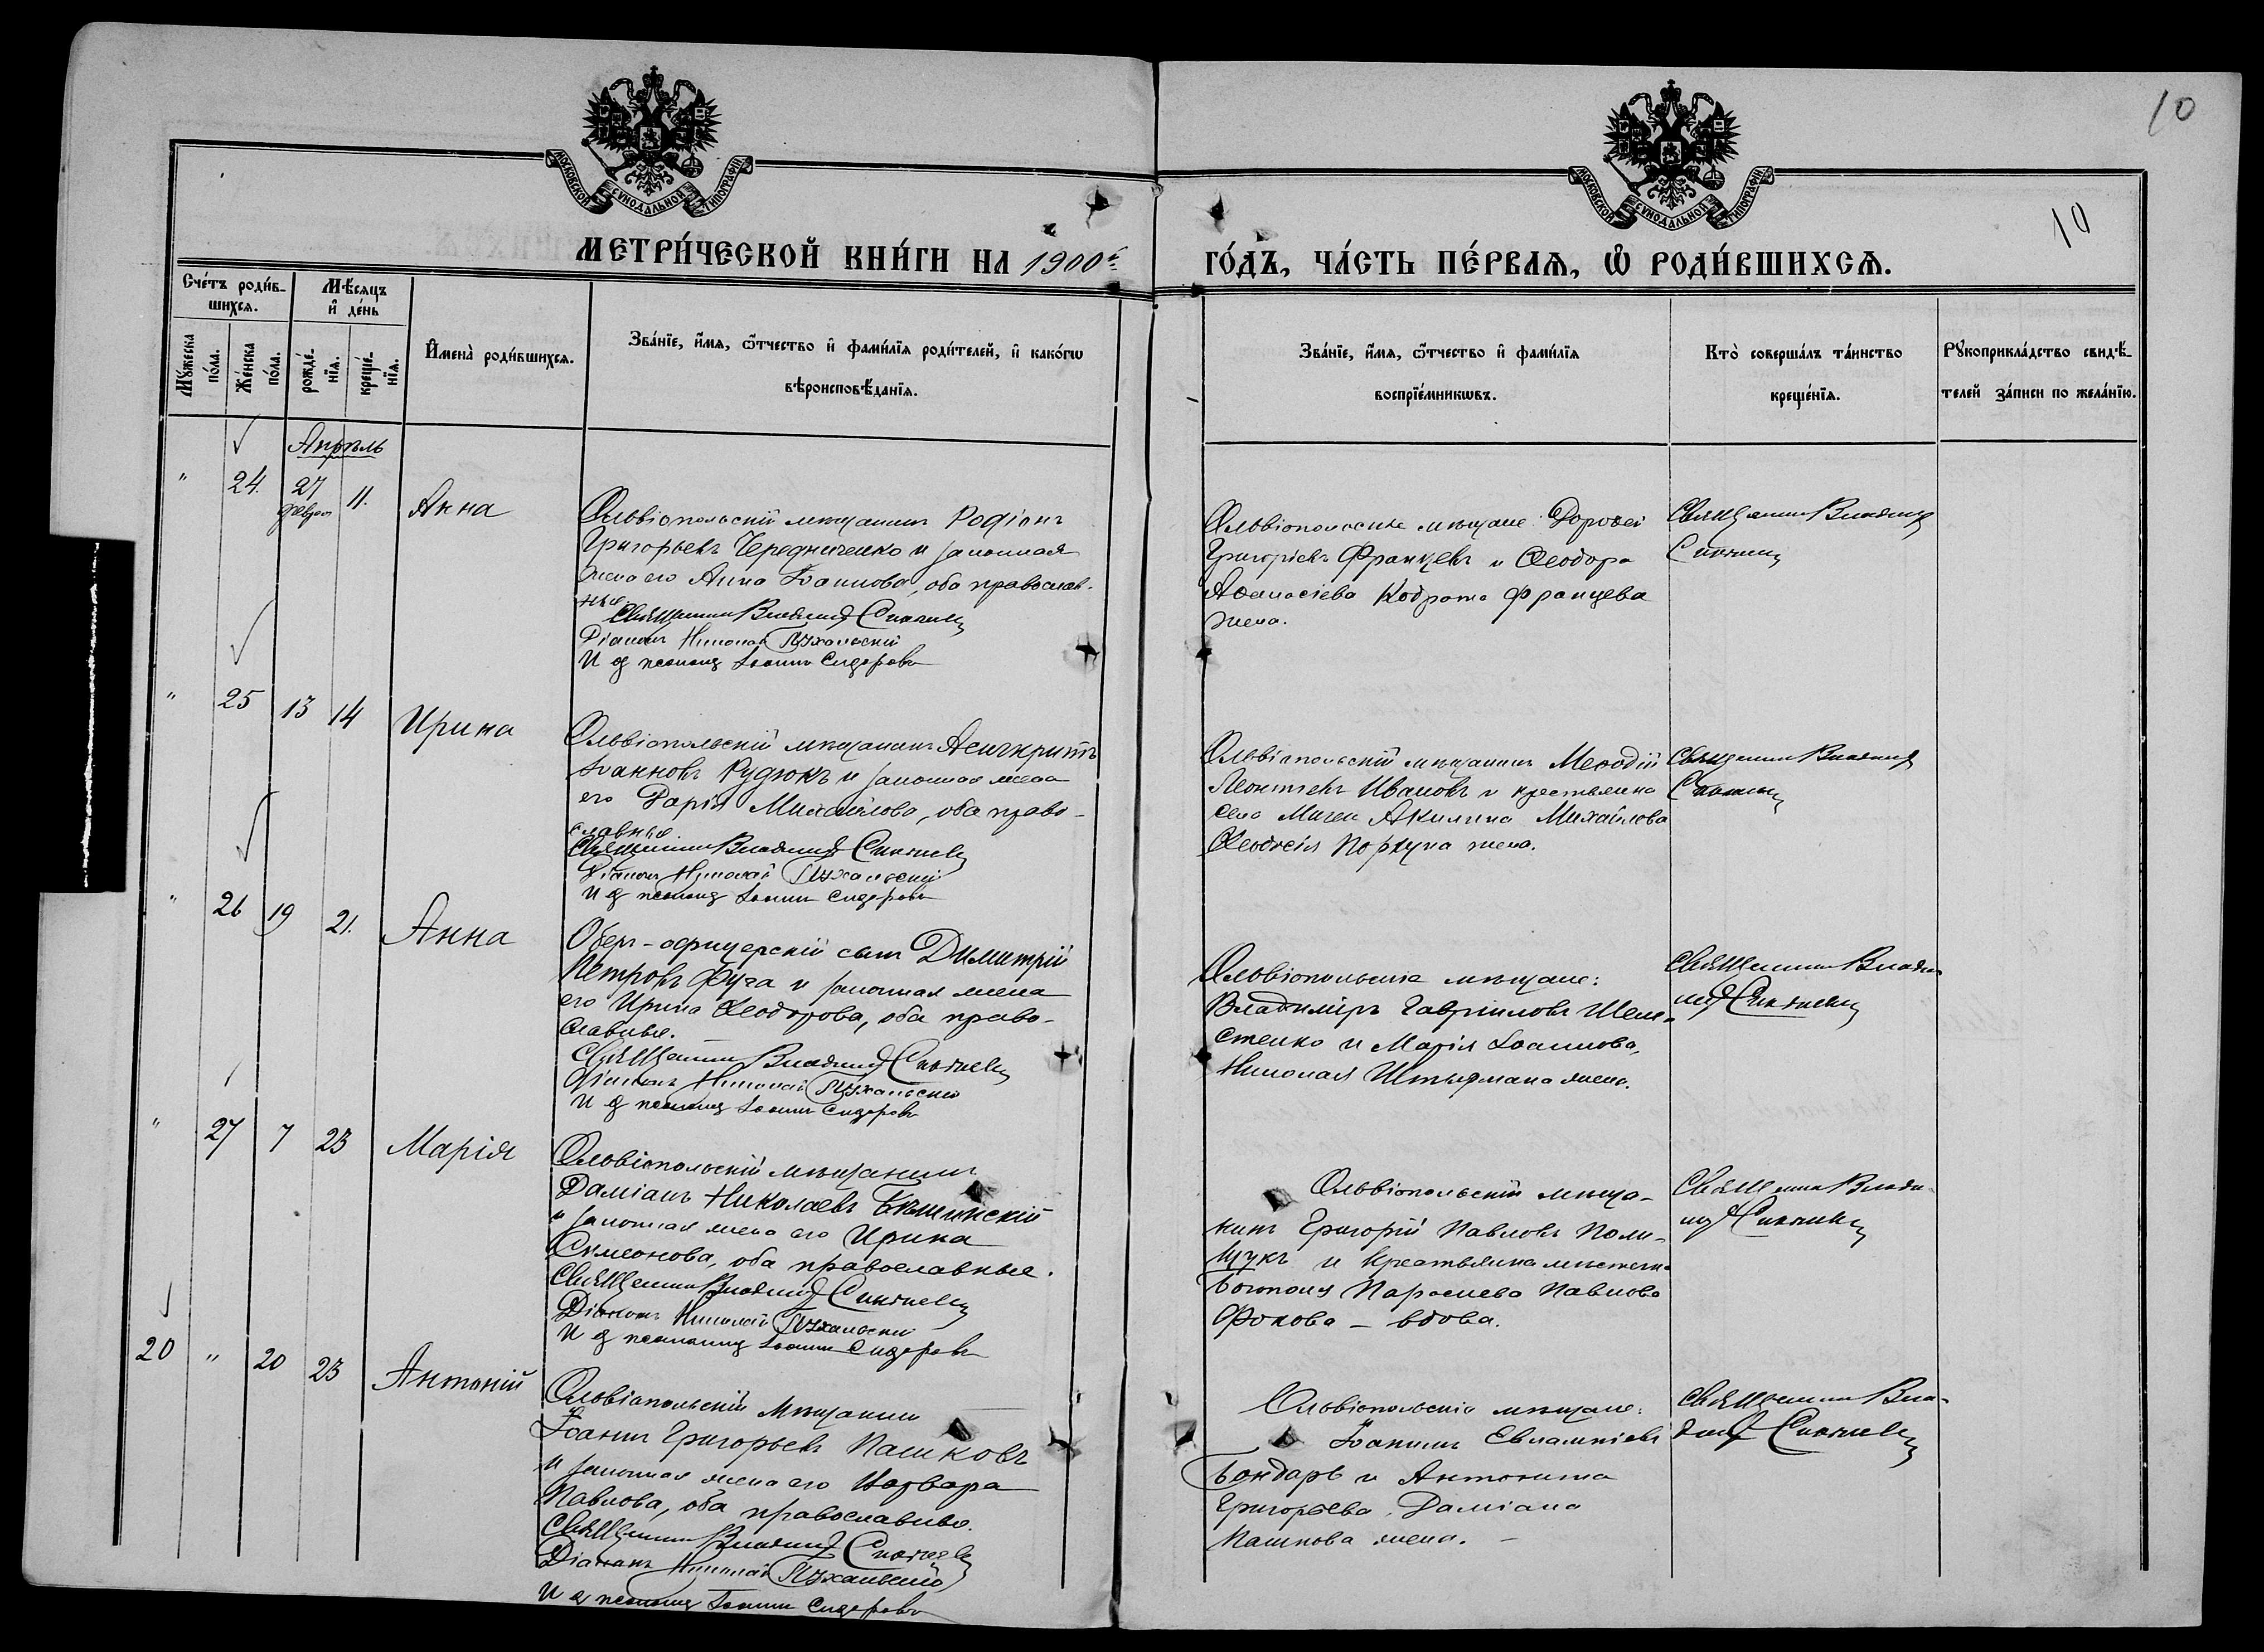 10
МОСКОВСКОЙ СУНОДАЛЬНОЙ ТИПОГРАФІИ
МОСКОВСКОЙ СУНОДАЛЬНОЙ ТИПОГРАФІИ
10
МЕТРИ́ЧЕСКОЙ КНИ́ГИ НА 1900 г.
ГО́ДЪ, ЧА́СТЬ ПЕ́РВАЯ, Ѡ РОДИ́ВШИХСЯ.
Сче́тъ роди́в-
шихся.
Мꙋжеска по́ла.
Же́нска по́ла.
Мѣ́сяцъ и де́нь
рожде́-
нїя.
креще́-
нїя.
Имена̀ роди́вшихся.
Зва́нїе, и́мя, ѻ́тчество и фами́лїя роди́телей, и како́гѡ
вѣроисповѣ́данїя.
Зва́нїе, и́мя, ѻ́тчество и фами́лїя
воспрїе́мникѡвъ.
Кто̀ соверша́лъ та́инство
креще́нїя.
Рꙋкоприкла́дство свидѣ́-
телей за́писи по жела́нїю.
Апрѣль
" 24. 27 феврал 11. Анна
Ольвіопольскій мѣщанинъ Родіонъ
Григорьевъ Чередниченко и законная
жена его Анна Іоаннова, оба православ-
ные.
Священникъ Владимір
Діаконъ Николай
И д псаломщ Іоаннъ Сидоровъ
Ольвіопольскіе мѣщане: Дороѳей
Григоріевъ Францевъ и Ѳеодора
Аѳанасіева Кодрата Францева
жена.
Священникъ Владимір
" 25 13 14 Ирина
Ольвіопольскій мѣщанинъ Асигкритъ
Іоанновъ Рудюкъ и законная жена
его Дарія Михайлова, оба право-
славные.
Священникъ Владимір
Діаконъ Николай
И д псаломщ Іоаннъ Сидоровъ
Ольвіопольскій мѣщанинъ Меѳодій
Леонтіевъ Ивановъ и крестьянка
села Мигеи Акилина Михайлова
Ѳеодосія Поркуна жена.
Священникъ Владимір
" 26 19 21. Анна
Оберъ-офицерскій сынъ Димитрій
Петровъ Фуга и законная жена
его Ирина Ѳеодорова, оба право-
славные.
Священникъ Владимір
Діаконъ Николай
И д псаломщ Іоаннъ Сидоровъ
Ольвіопольскіе мѣщане:
Владиміръ Гавріиловъ Шеле-
стенко и Марія Іоаннова,
Николая жена.
Священникъ Влади-
мір
" 27 7 23 Марія
Ольвіопольскій мѣщанинъ
Даміанъ Николаевъ
и законная жена его Ирина
Симеонова, оба православные.
Священникъ Владимір
Діаконъ Николай
И д псаломщ Іоаннъ Сидоровъ
Ольвіопольскій мѣща-
нинъ Григорій Павловъ Поли-
щукъ и крестьянка мѣстечка
Богополя Параскева Павлова
Фокова – вдова.
Священникъ Влади-
мір
20 " 20 23 Антоній
Ольвіопольскій мѣщанинъ
Іоаннъ Григорьевъ Пашковъ
и законная жена его Варвара
Павлова, оба православные.
Священникъ Владимір
Діаконъ Николай
И д псаломщ Іоаннъ Сидоровъ
Ольвіопольскіе мѣщане:
Іоакимъ Евлампіевъ
Бондарь и Антонина
Григорьева, Даміана
Пашкова жена. –
Священникъ Вла-
димір